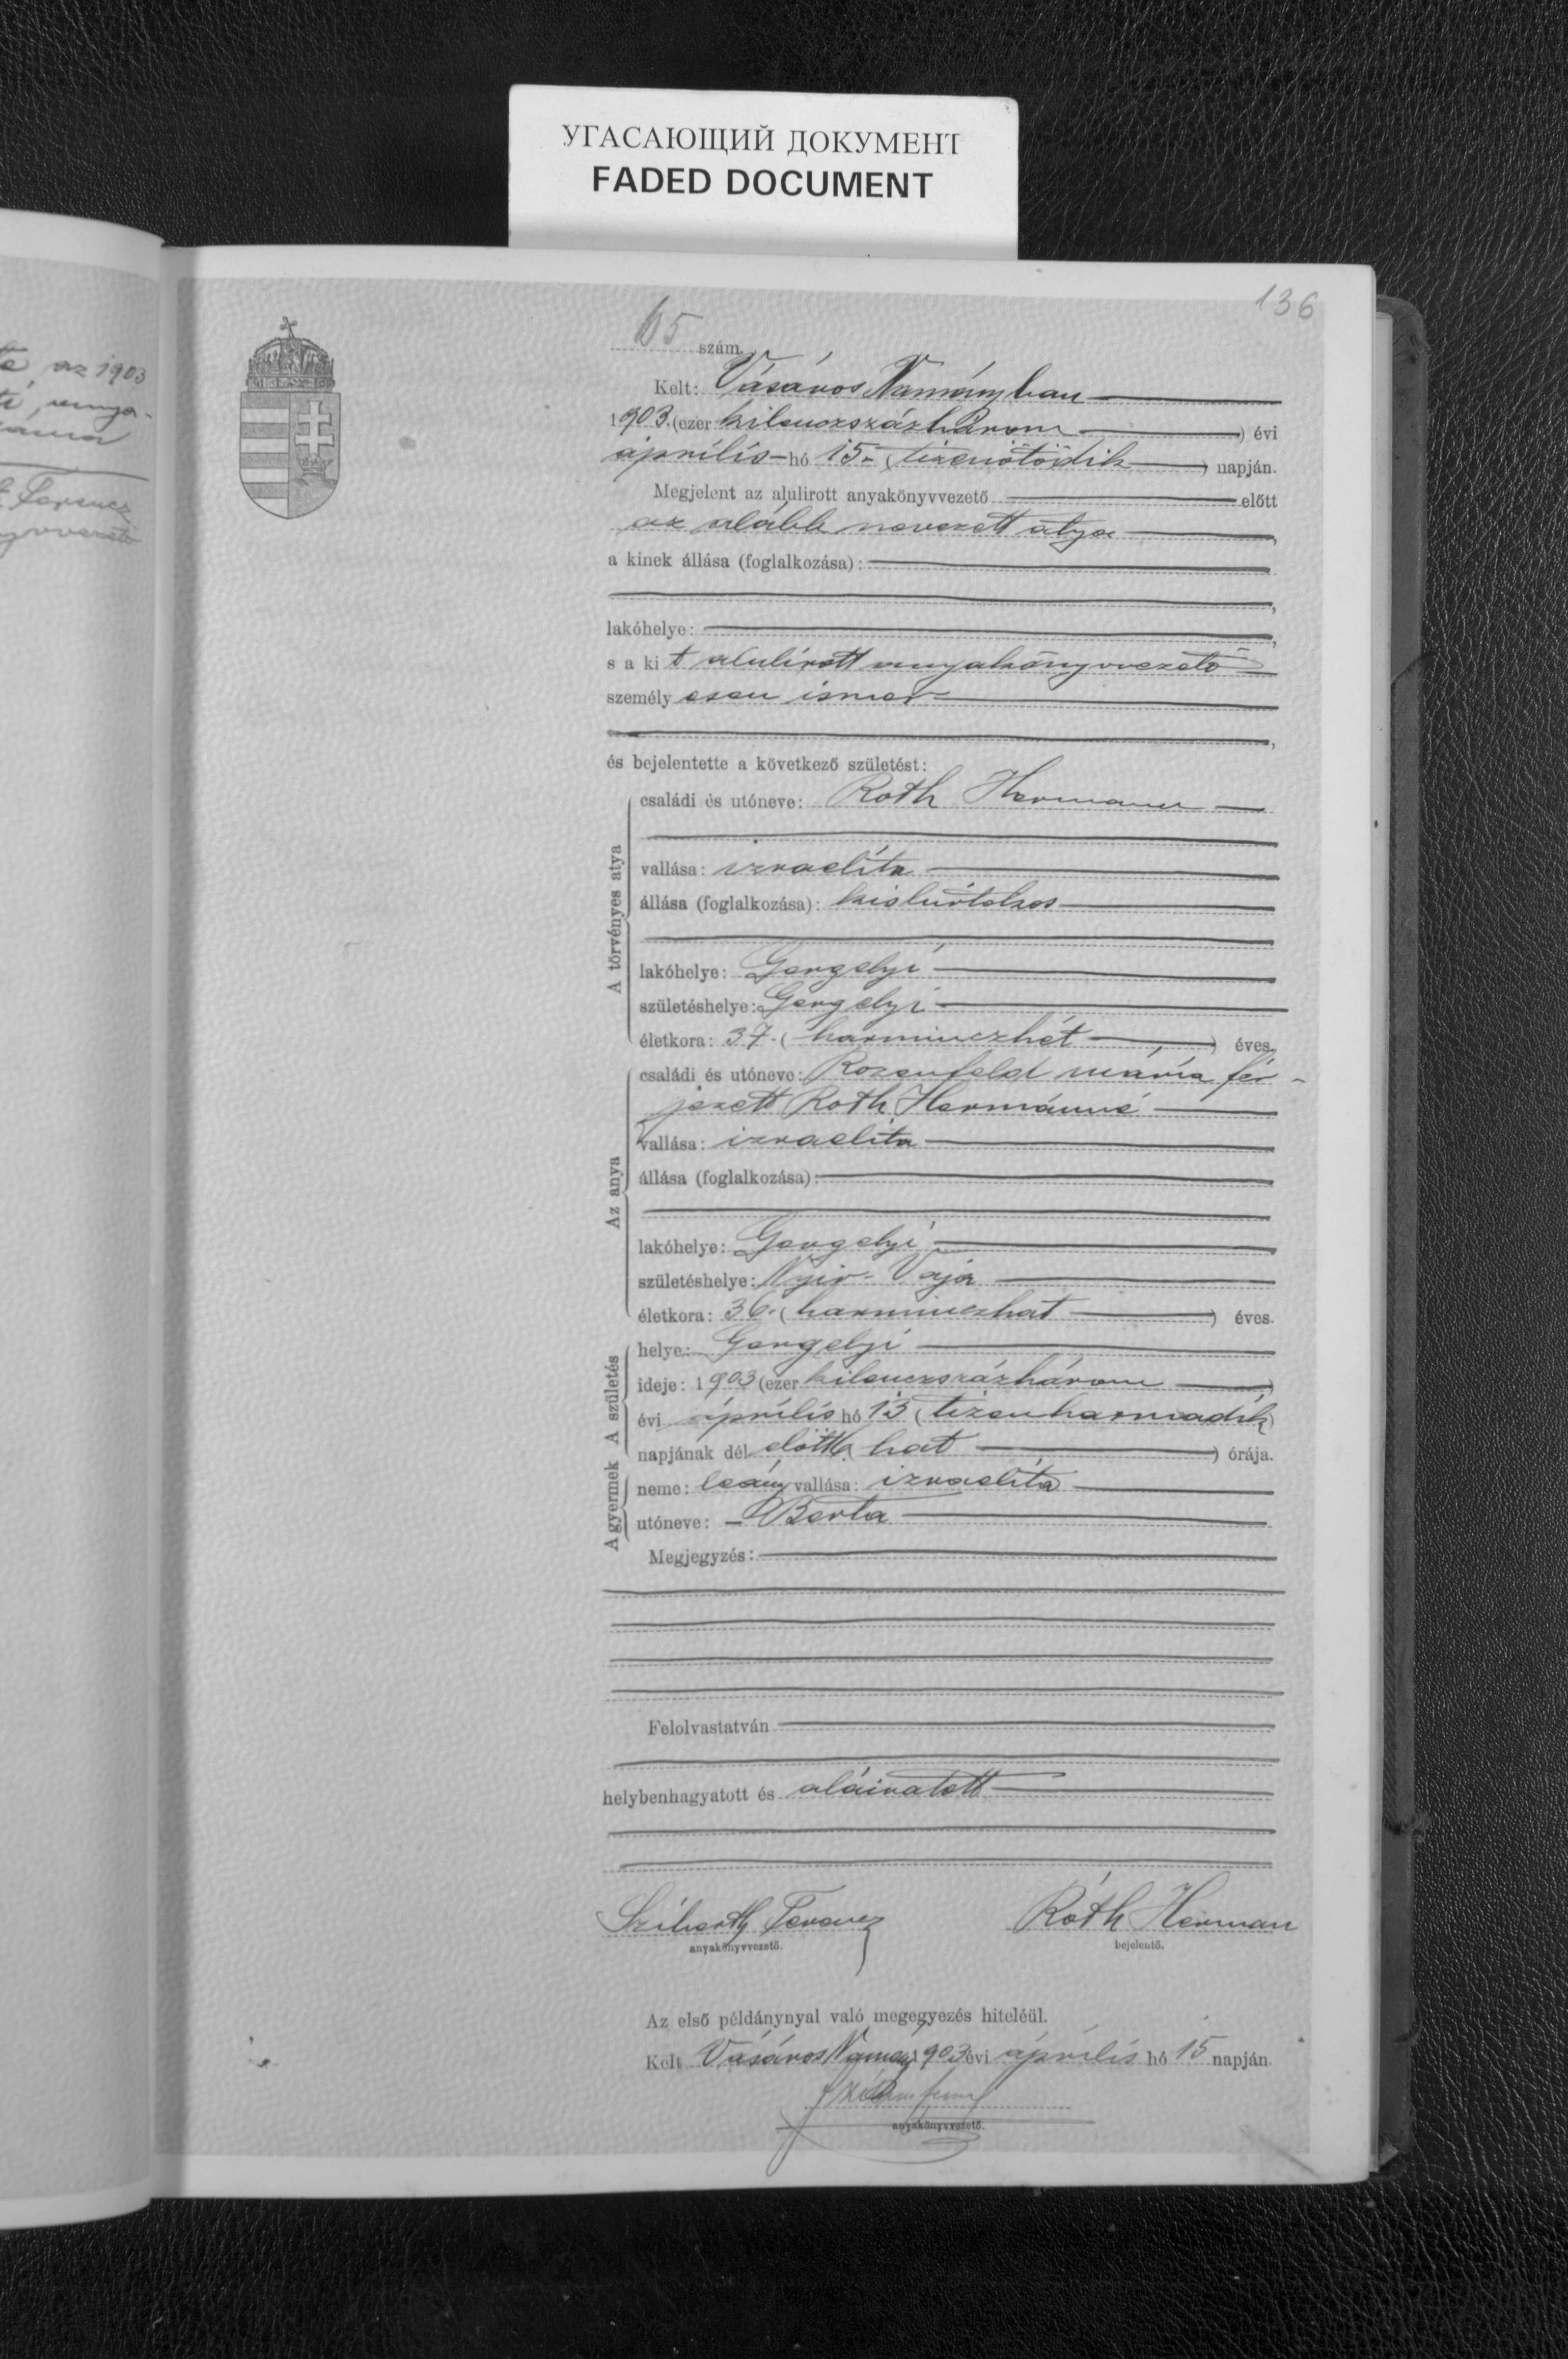 УГАСАЮЩИЙ ДОКУМЕНТ
FADED DOCUMENT
te az 1903
Ferencz
136
65 szám.
Kelt: Vásáros Naményban
1903. (ezer kilenczszázhárom) évi
április hó 15. (tizenötödik) napján.
Megjelent az alulirott anyakönyvvezető előtt
az alább nevezett atya,
a kinek állása (foglalkozása):
,
lakóhelye: ,
s a kit alulirott anyakönyvvezető
személyesen ismer
,
és bejelentette a következő születést:
A törvényes atya
családi és utóneve: Roth Hermann
vallása: izraelita
állása (foglalkozása): kisbirtokos
lakóhelye: Gergelyi
születéshelye: Gergelyi
életkora: 37. (harminczhét) éves.
Az anya
családi és utóneve: Rozenfeld mária fér-
jezett Roth Hermánné
vallása: izraelita
állása (foglalkozása):
lakóhelye: Gergelyi
születéshelye: Nyir-Vaja
életkora: 36. (harminczhat) éves.
A születés
helye: Gergelyi
ideje: 1903 (ezer kilenczszázhárom)
évi április hó 13 (tizenharmadik)
napjának dél előtt (hat) órája.
A gyermek
neme: leány vallása: izraelita
utóneve: Berta
Megjegyzés:
Felolvastatván
helybenhagyatott és aláiratott
Ferencz Róth Herman
anyakönyvvezető. bejelentő.
Az első példánynyal való megegyezés hiteléül.
Kelt Vásáros Namény 1903 évi április hó 15 napján.
anyakönyvvezető.